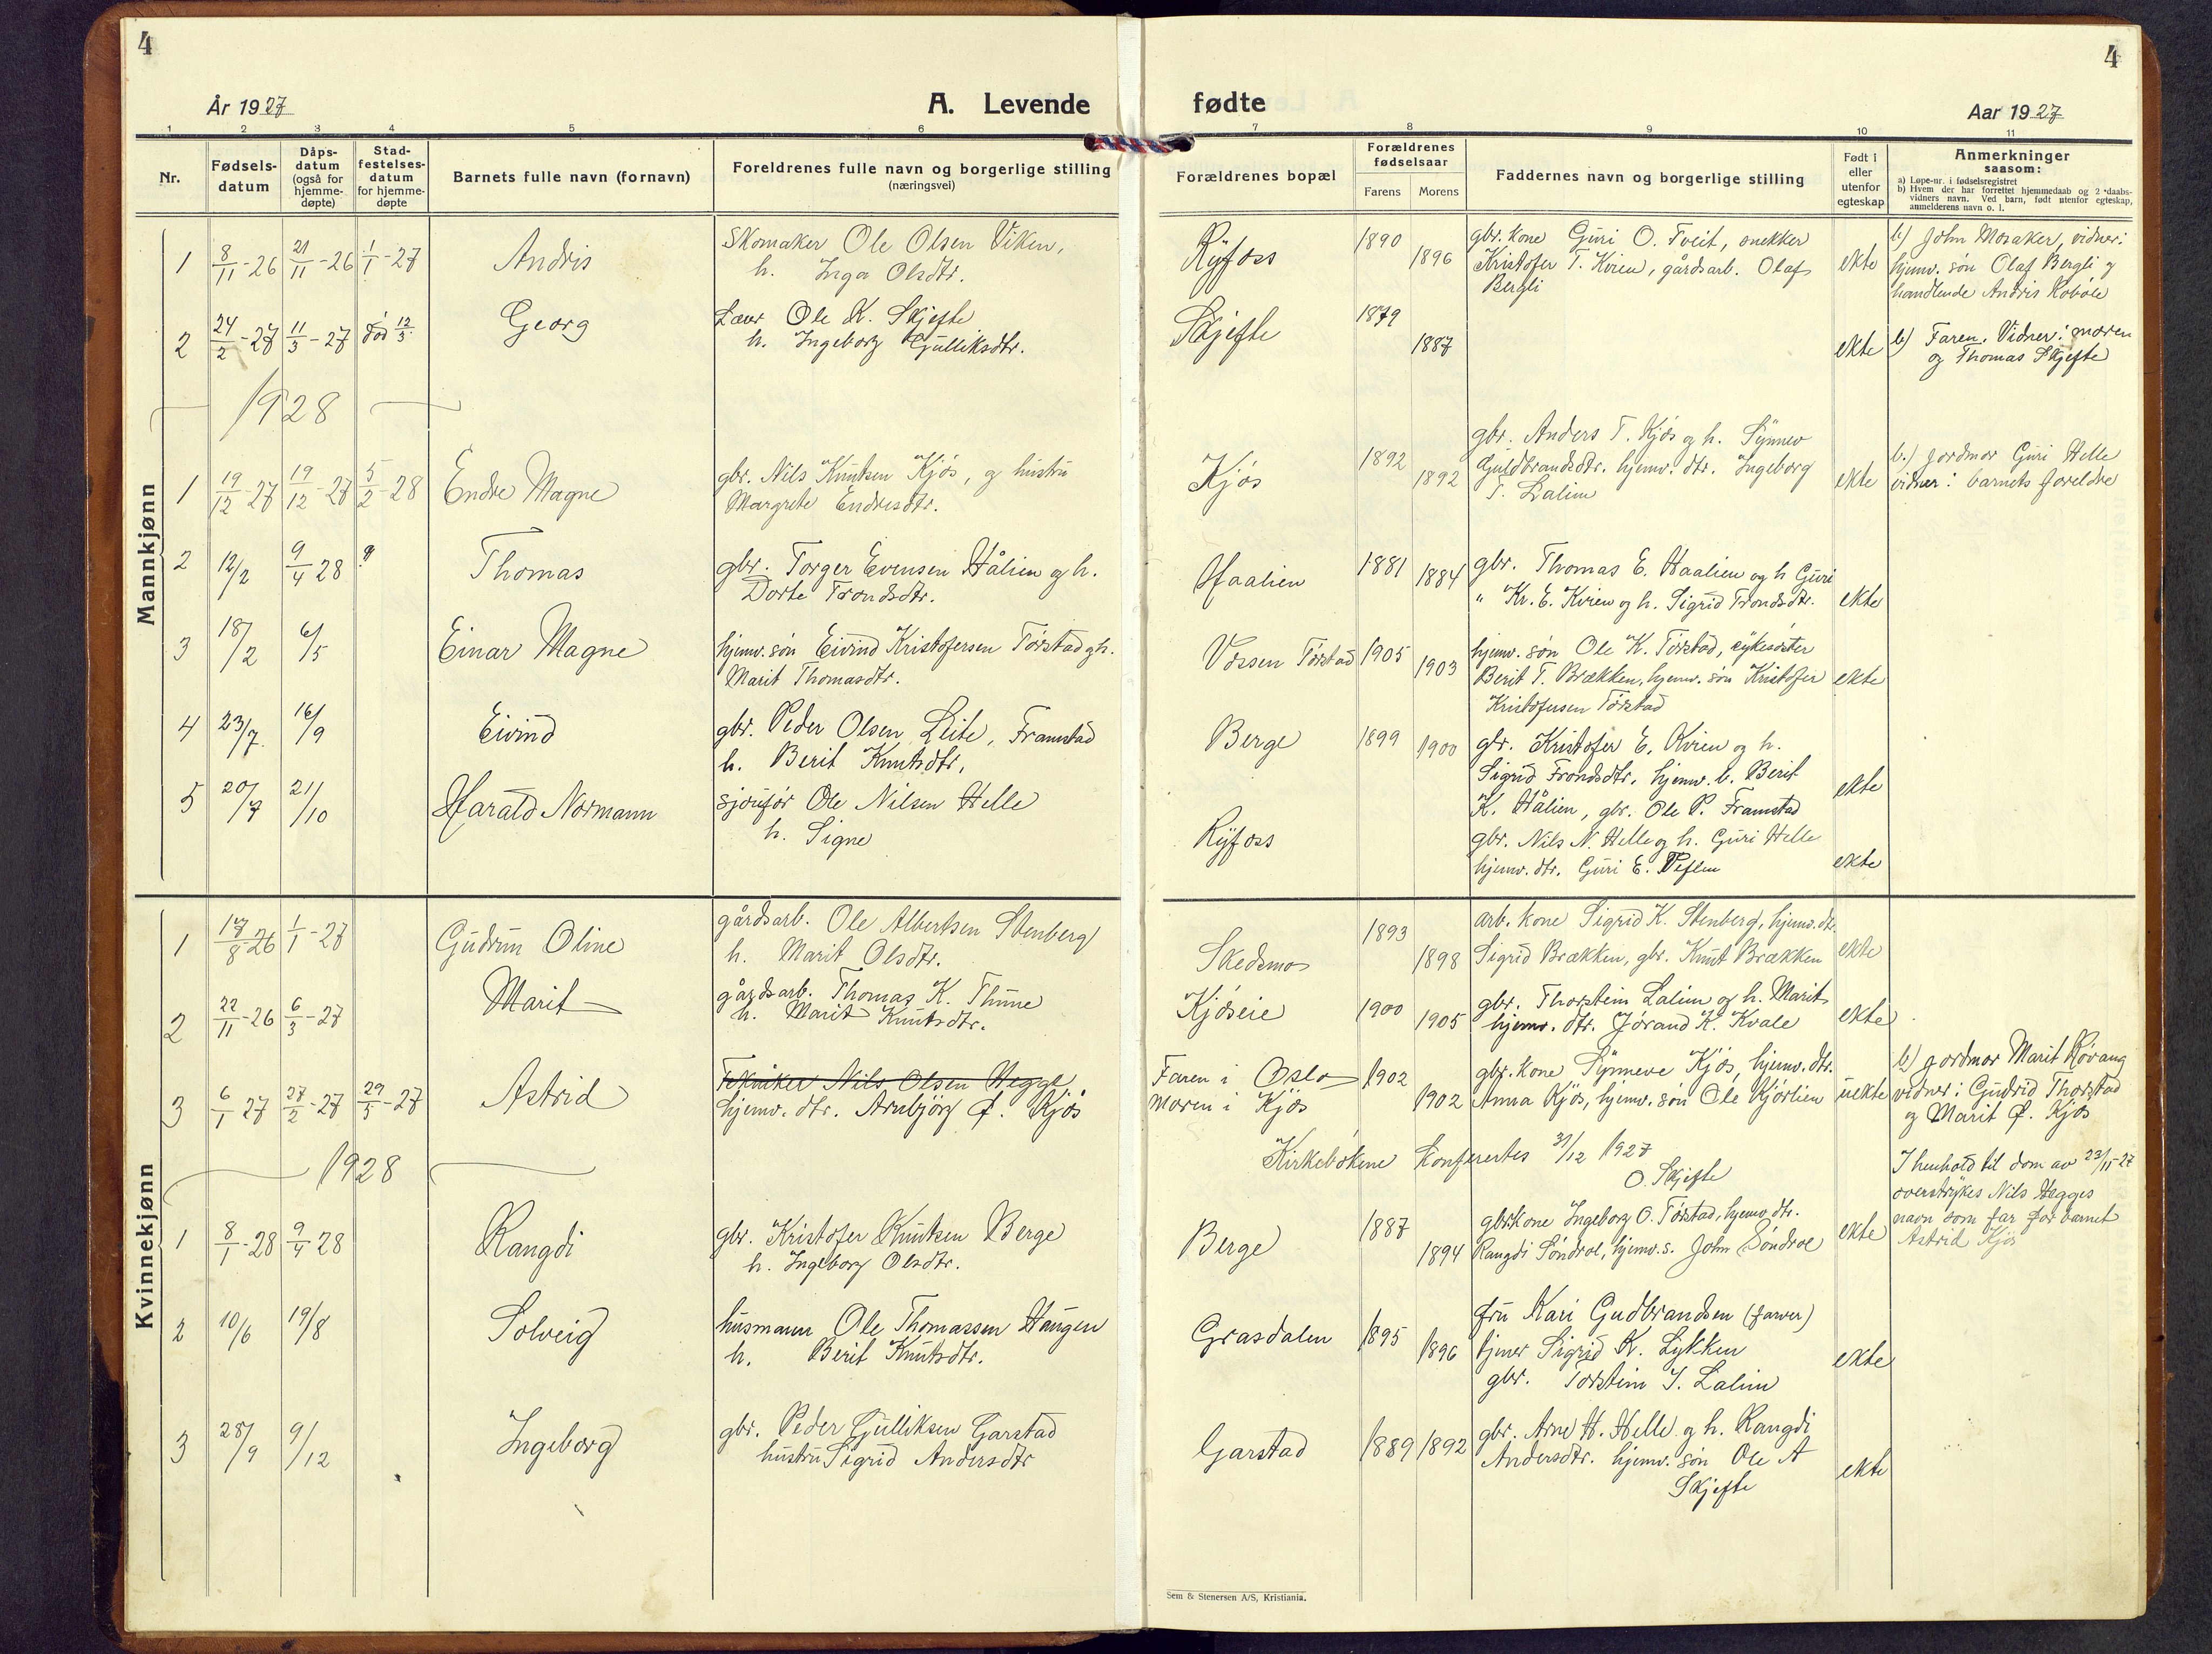 4
År 1927
A. Levende
1 2 3 4 5 6
Nr.
Fødsels-
datum
Dåps-
datum
(også for
hjemme-
døpte)
Stad-
festelses-
datum
for hjemme-
døpte
Barnets fulle navn (fornavn)
Foreldrenes fulle navn og borgerlige stilling
(næringsvei)
Mannkjønn
1 8/11-26 21/11-26 1/1-27 Andris Skomaker Ole Olsen Viken,
h. Inga Olsdtr.
2 24/2-27 11/3-27 død 12/3. Georg Lærer Ole K. Skjefte
h. Ingeborg Gulliksdtr.
1928
1 19/12-27 19/12-27 5/2-28 Endre Magne gbr. Nils Knutsen Kjøs, og hustru
Margrete Endresdtr.
2 12/2 9/4 28 Thomas gbr. Torger Evensen Hålien og h.
Dorte Trondsdtr.
3 18/2 6/5 Einar Magne hjemv. søn Eivind Kristofersen Tørstad og h.
Marit Thomasdtr.
4 23/7. 16/9 Eivind gbr. Peder Olsen Leite, Framstad
h. Berit Knutsdtr,
5 20/7 21/10 Harald Normann sjåufør Ole Nilsen Helle
h. Signe
Kvinnekjønn
1 17/8-26 1/1-27 Gudrun Oline gårdsarb. Ole Albertsen Stenberg
h. Marit Olsdtr.
2 22/11-26 6/3-27 Marit gårdsarb. Thomas K. Thune
h. Marit Knutsdtr.
3 6/1 27 27/2-27 29/5-27 Astrid Tekniker Nils Olsen Hegge
hjemv. dtr. Arnbjörg Ø. Kjøs
1928
1 8/1-28 9/4 28 Rangdi gbr. Kristofer Knutsen Berge
h. Ingeborg Olsdtr.
2 10/6 19/8 Solveig husmann Ole Thomassen Haugen
h. Berit Knutsdtr.
3 28/9 9/12 Ingeborg gbr. Peder Gulliksen Garstad
hustru Sigrid Andersdtr
4
fødte
Aar 1927
7 8 9 10 11
Forældrenes bopæl
Forældrenes
fødselsaar
Farens Morens
Faddernes navn og borgerlige stilling
Født i
eller
utenfor
egteskap
Anmerkninger
saasom:
a) Løpe-nr. i fødselsregistret
b) Hvem der har forrettet hjemmedaab og 2 daabs-
vidners navn. Ved barn, født utenfor egteskap,
anmelderens navn o. l.
Ryfoss 1890 1896 gbr. kone Guri O. Tveit, snekker
Kristofer T. Kvien, gårdsarb. Olaf
Bergli
ekte
b) John Mosaker, vidner:
hjemv. søn Olaf Bergli og
handlende Andris Robøle
Skjefte 1879 1887 ekte
b) Faren. Vidner: moren
og Thomas Skjefte
Kjøs 1892 1892 gbr. Anders T. Kjøs og h. Synnev
Guldbrandsdtr. hjemv. dtr. Ingeborg
T. Lalim
ekte
b.) Jordmor Guri Helle
vidner: barnets foreldre
Haalien 1881 1884 gbr. Thomas E. Haalien og h Guri
" Kr. E. Kvien og h. Sigrid Trondsdtr.
ekte
Vossen Tørstad 1905 1903 hjemv. søn Ole K. Tørstad, sykesøster
Berit T. Brækken, hjemv. søn Kristofer
Kristofersen Tørstad
ekte
Berge 1899 1900 gbr. Kristofer E. Kvien og h.
Sigrid Trondsdtr, hjemv. b. Berit
K. Hålien, gbr. Ole P. Framstad
ekte
Ryfoss gbr. Nils N. Helle og h. Guri Helle
hjemv. dtr. Guri E.
ekte
Skedsmo 1893 1898 arb. kone Sigrid K. Stenberg, hjemv. dtr.
Sigrid Brækken, gbr. Knut Brækken
ekte
Kjøseie 1900 1905 gbr. Thorstein Lalim og h. Marit
hjemv. dtr. Jørand K. Kvale
ekte
Faren i Oslo
Moren i Kjøs
1902 1902 gbr. kone Synneve Kjøs, hjemv. dtr.
Anna Kjøs, hjemv. søn Ole Kjørlien
uekte
b) Jordmor Marit Røvang
vidner: Gudrid Thorstad
og Marit Ø. Kjøs
Kirkebøkene konferertes 31/12 1927
O. Skjefte
I henhold til dom av 23/11-27
overstrykes Nils Hegges
navn som far for barnet
Astrid Kjøs
Berge 1887 1894 gbr. kone Ingeborg O. Tørstad, hjemv. dtr.
Rangdi Søndrol, hjemv. s. John Søndrol
ekte
Grasdalen 1895 1896 fru Kari Gudbrandsen (farver)
tjener Sigrid K. Lykken
gbr. Torstein I. Lalim
ekte
Garstad 1889 1892 gbr. Arne H. Helle og h. Rangdi
Andersdtr. hjemv. søn Ole A
Skjefte
ekte
Sem & Stenersen A/S, Kristiania.